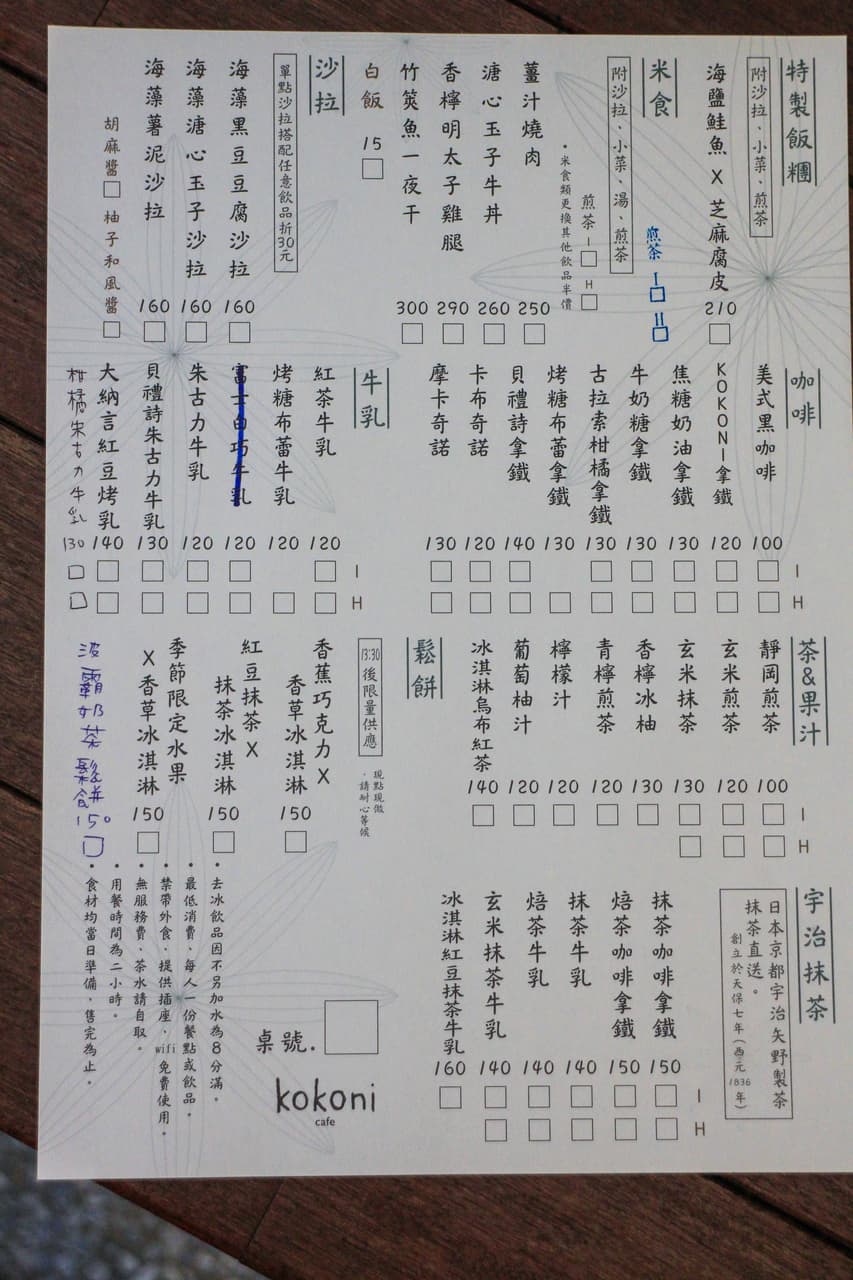 特製飯糰
附沙拉、小菜、煎茶
海鹽鮭魚 X 芝麻腐皮 210
米食
附沙拉、小菜、湯、煎茶
煎茶 I H
煎茶 I H
•米食類更換其他飲品半價
薑汁燒肉 250
溏心玉子牛丼 260
香檸明太子雞腿 290
竹筴魚一夜干 300
白飯 15
沙拉
單點沙拉搭配任意飲品折30元
海藻黑豆豆腐沙拉 160
海藻溏心玉子沙拉 160
海藻薯泥沙拉 160
胡麻醬 柚子和風醬
咖啡
I
H
美式黑咖啡 100
KOKONI拿鐵 120
焦糖奶油拿鐵 130
牛奶糖拿鐵 130
古拉索柑橘拿鐵 130
烤糖布蕾拿鐵 130
貝禮詩拿鐵 140
卡布奇諾 120
摩卡奇諾 130
牛乳
I
H
紅茶牛乳 120
烤糖布蕾牛乳 120
富士白巧牛乳 120
朱古力牛乳 120
貝禮詩朱古力牛乳 130
大納言紅豆烤乳 140
柑橘朱古力牛乳 130
茶&果汁
I
H
靜岡煎茶 100
玄米煎茶 120
玄米抹茶 130
香檸冰柚 130
青檸煎茶 120
檸檬汁 120
葡萄柚汁 120
冰淇淋烏布紅茶 140
鬆餅
13:30後限量供應
現點現做
，請耐心等候
香蕉巧克力 X
香草冰淇淋 150
紅豆抹茶 X
抹茶冰淇淋 150
季節限定水果
X 香草冰淇淋 150
波霸奶茶鬆餅 150
宇治抹茶
日本京都宇治矢野製茶
抹茶直送。
創立於天保七年(西元1836年)
I
H
抹茶咖啡拿鐵 150
焙茶咖啡拿鐵 150
抹茶牛乳 140
焙茶牛乳 140
玄米抹茶牛乳 140
冰淇淋紅豆抹茶牛乳 160
桌號.
kokoni
cafe
•去冰飲品因不另加水為8分滿。
•最低消費、每人一份餐點或飲品。
•禁帶外食、提供插座、wifi免費使用。
•無服務費、茶水請自取。
•用餐時間為二小時。
•食材均當日準備，售完為止。